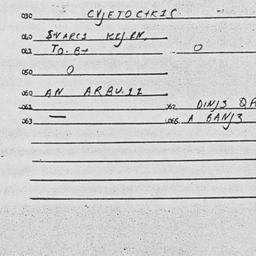 030 CVJETOCKIC.
040 SVARCI KEJRN.
043 TO. B+ O
050 O
060 AN ARBU.12
062 — 062 DINJ3 QA
063 068 A BANJ3